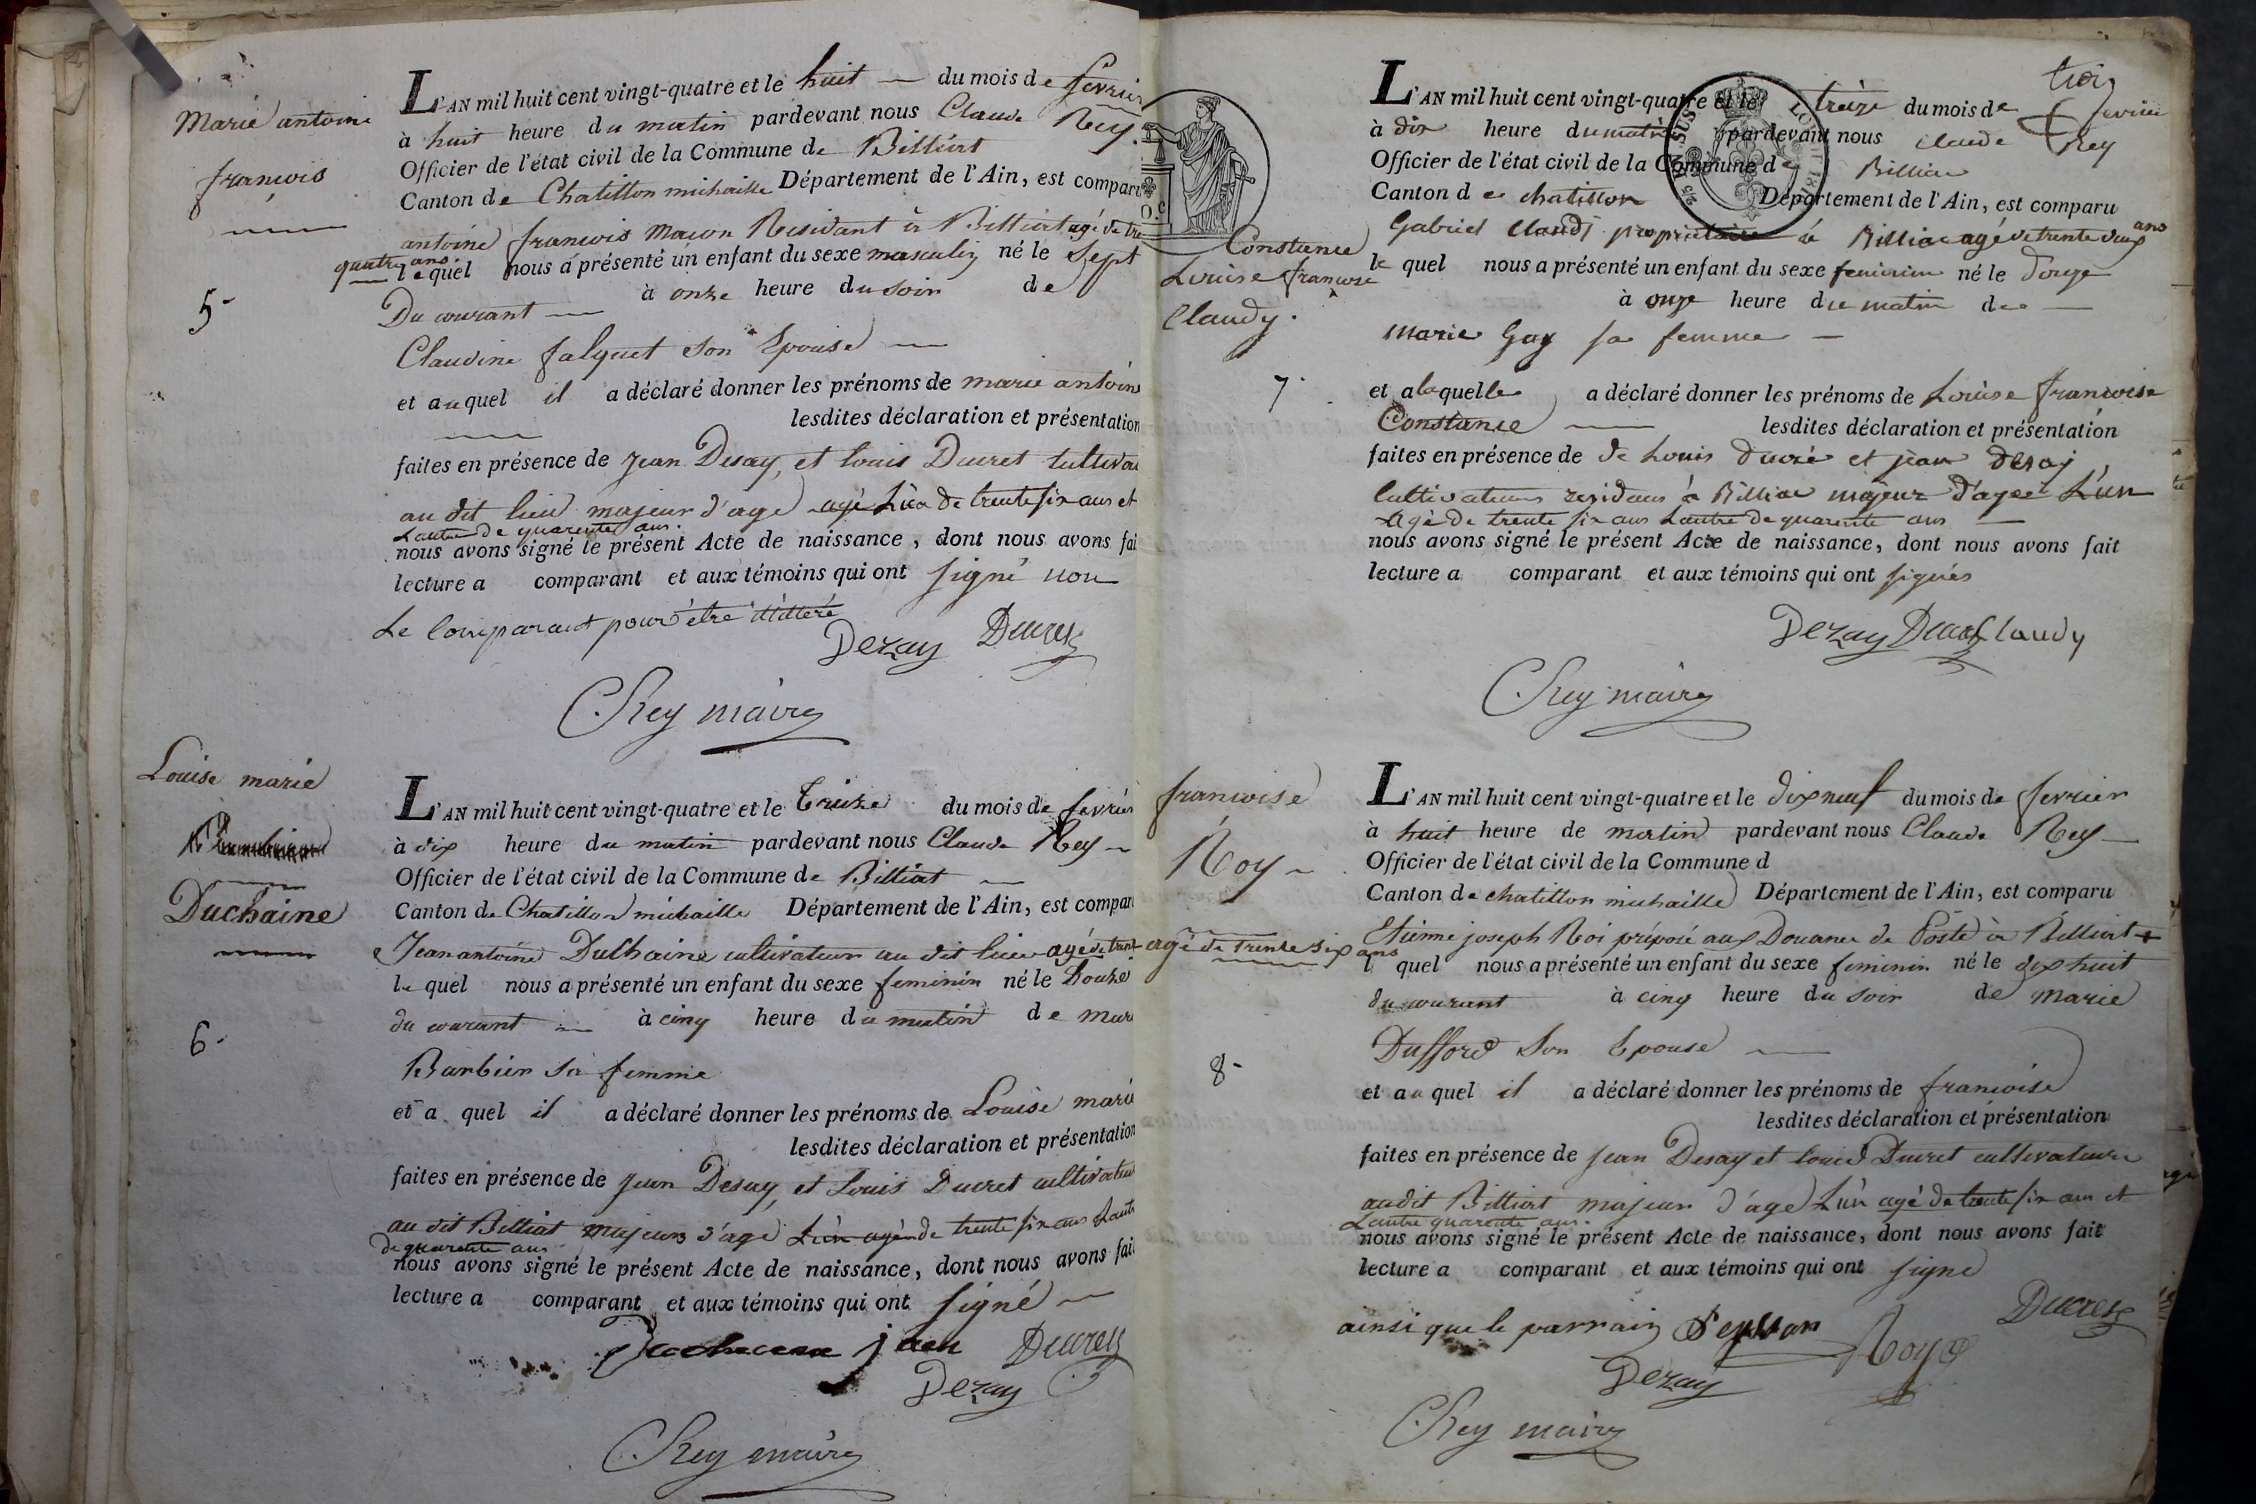 Marie antoine
françois
5-
L'AN mil huit cent vingt-quatre et le huit du mois de fevrier
à huit heure du matin pardevant nous Claude Rey.
Officier de l'état civil de la Commune de Billiat
Canton de Chatillon michaille Département de l'Ain, est comparu
antoine francois macon Residant à Billiat agé de tre
quatre ans. lequel nous a présenté un enfant du sexe masculin né le Sept
Du courant à onze heure du soir de
Claudine falquet son Epouse
et auquel il a déclaré donner les prénoms de marie antoine
lesdites déclaration et présentation
faites en présence de Jean Desay, et Louis Ducret cultivat
au dit lieu majeur d'age agé L'un de trente six ans et
Lautre de quarente ans.
nous avons signé le présent Acte de naissance, dont nous avons fai
lecture a comparant et aux témoins qui ont signé non
Le Comparant pour être illiteré
Dezay Ducret
CRey maire
Louise marie
Duchaine
6-
L'AN mil huit cent vingt-quatre et le Treize du mois de fevrier
à dix heure du matin pardevant nous Claude Rey
Officier de l'état civil de la Commune de Billiat
Canton de Chatillon michaille Département de l'Ain, est compar
Jean antoine DuChaine cultivateur au dit lieu agé de trent
le quel nous a présenté un enfant du sexe feminin né le Douze
du courant à cinq heure du matin de mari
Barbier sa femme
et a quel il a déclaré donner les prénoms de Louise marie
lesdites déclaration et présentation
faites en présence de Jean Desay, et Louis Ducret cultivateu
au dit Billiat majeurs d'age L'un agé de trente six ans Lautr
de quarente ans
nous avons signé le présent Acte de naissance, dont nous avons fai
lecture a comparant et aux témoins qui ont signé
jaen Ducret
Dezay
CRey maire
trois
Constance
Louise françoise
Claudy.
7.
L'AN mil huit cent vingt-quatre et le treize du mois de fevrier
à dix heure du matin pardevant nous claude Rey
Officier de l'état civil de la Commune de Billiat
Canton de chatillon Département de l'Ain, est comparu
Gabriel Claudy propriétaire à Billiat agé de trente deux ans
le quel nous a présenté un enfant du sexe feminin né le douze
à onze heure du matin de
Marie Gay sa femme
et a laquelle a déclaré donner les prénoms de Louise françoise
Constance lesdites déclaration et présentation
faites en présence de de Louis ducré et jean desay
Cultivateurs residans à Billiat majeur d'agee L'un
Agé de trente six ans Lautre de quarente ans
nous avons signé le présent Acte de naissance, dont nous avons fait
lecture a comparant et aux témoins qui ont signés
Dezay Ducret Claudy
CRey maire
francoise
Roy
8-
L'AN mil huit cent vingt-quatre et le dix neuf du mois de fevrier
à huit heure de matin pardevant nous Claude Rey
Officier de l'état civil de la Commune d
Canton de chatillon michaille Département de l'Ain, est comparu
Etienne joseph Roi préposé aux Douanes de Poste à Billiat +
agé de trente six ans
l quel nous a présenté un enfant du sexe feminin né le dix huit
du courant à cinq heure du soir de Marie
Dufford Son Epouse
et au quel il a déclaré donner les prénoms de francoise
lesdites déclaration et présentation
faites en présence de Jean Desay et Louis Ducret cultivateurs
audit Billiat majeur d'age L'un agé de trente six ans et
Lautre quarente ans.
nous avons signé le présent Acte de naissance, dont nous avons fait
lecture a comparant et aux témoins qui ont signé
ainsi que le parrain Ducret
Roy
Dezay
CRey maire